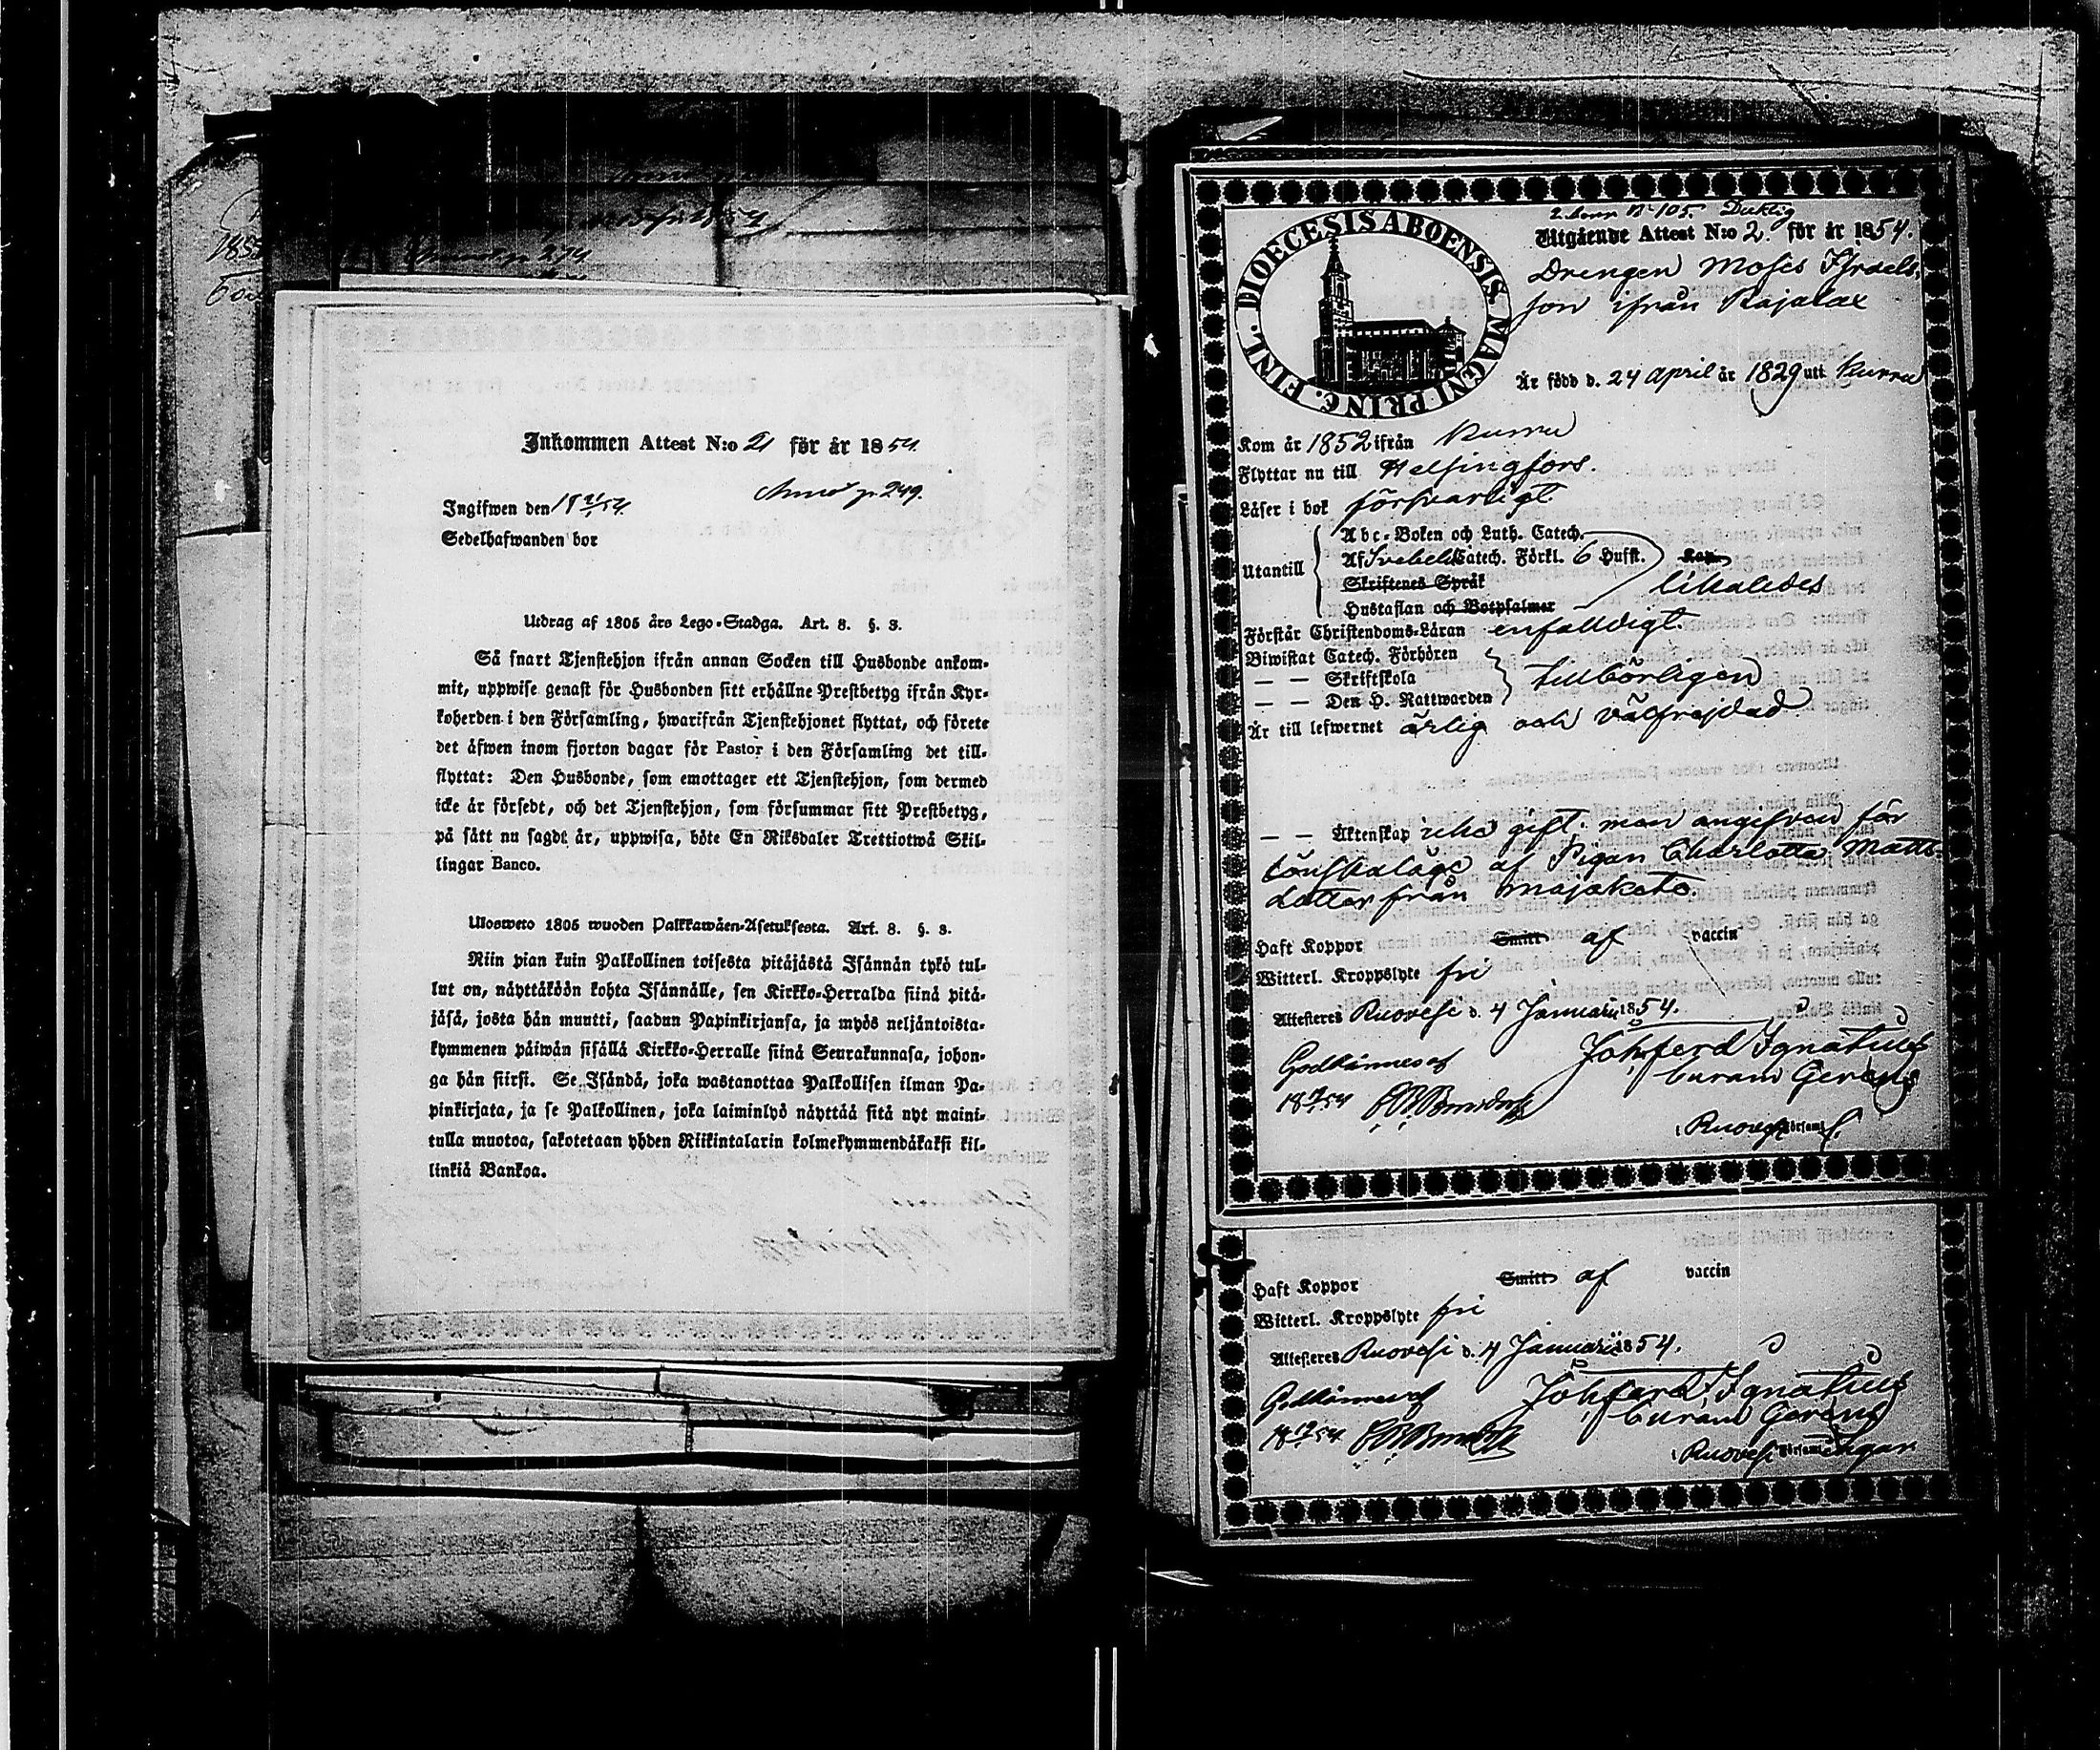 Inkommen Attest N:o 21 för år 1854.
Ingifwen den 18 21/1 54.
Sedelhafwanden bor
Utdrag af 1805 års Lego-Stadga. Art. 8. §. 3.
Så snart Tjenstehjon ifrån annan Socken till Husbonde ankom-
mit, uppwise genast för Husbonden sitt erhållne Prestbetyg ifrån Kyr-
koherden i den Församling, hwarifrån Tjenstehjonet flyttat, och förete
det äfwen inom fjorton dagar för Pastor i den Församling det till-
flyttat: Den Husbonde, som emottager ett Tjenstehjon, som dermed
icke är försedt, och det Tjenstehjon, som försummar sitt Prestbetyg,
på sätt nu sagdt är, uppwisa, böte En Riksdaler Trettiotwå Skil-
lingar Banco.
Ulosweto 1805 wuoden Palkkawäen-Asetuksesta. Art. 8. §. 3.
Niin pian kuin Palkollinen toisesta pitäjästä Isännän tykö tul-
lut on, näyttäköön kohta Isännälle, sen Kirkko-Herralda siinä pitä-
jäsä, josta hän muutti, saadun Papinkirjansa, ja myös neljäntoista-
kymmenen päiwän sisällä Kirkko-Herralle siinä Seurakunnasa, johon-
ga hän siirsi. Se Isändä, joka wastanottaa Palkollisen ilman Pa-
pinkirjata, ja se Palkollinen, joka laiminlyö näyttää sitä nyt maini-
tulla muotoa, sakotetaan yhden Riikintalarin kolmekymmendäkaksi kil-
linkiä Bankoa.
DIOECESIS ABOENSIS. MAGNI PRINC. FINL.
Utgående Attest N:o 2. för år 1854.
Drengen Moses Isräels
son ifrån Rajalax
Är född d. 24 April år 1829 uti Kurru
Kom år 1852 ifrån Kurru
Flyttar nu till Helsingfors.
Läser i bok försvarligt
Utantill
Abc-Boken och Luth. Catech.
Af Svebelii Catech. Förkl. 6 Hufst.
Skriftenes Språk
likaledes
Hustaflan och Botpsalmer
Förstår Christendoms-Läran enfaldigt
Biwistat Catech. Förhören
— — Skriftskola tillbörligen
— — Den H. Nattwarden
Är till lefwernet ärlig och välfrejdad
— — Äktenskap icke gift; men angifven för
lönskaläge af Pigan Charlotta Matts-
dotter från Majakoto
Haft Koppor Smitt af vaccin
Witterl. Kroppslyte fri
Attesteres Ruovesi d. 4 Januarii 1854.
Joh: ferd Ignatius
Godkännes af
Curam Gerens
i Ruovesi Församl.
Haft Koppor Smitt af vaccin
Witterl. Kroppslyte fri
Attesteres Ruovesi d. 4 Januarii 1854.
Joh: ferd Ignatius
Godkännes af
Curam Gerens
i Ruovesi Församlingar